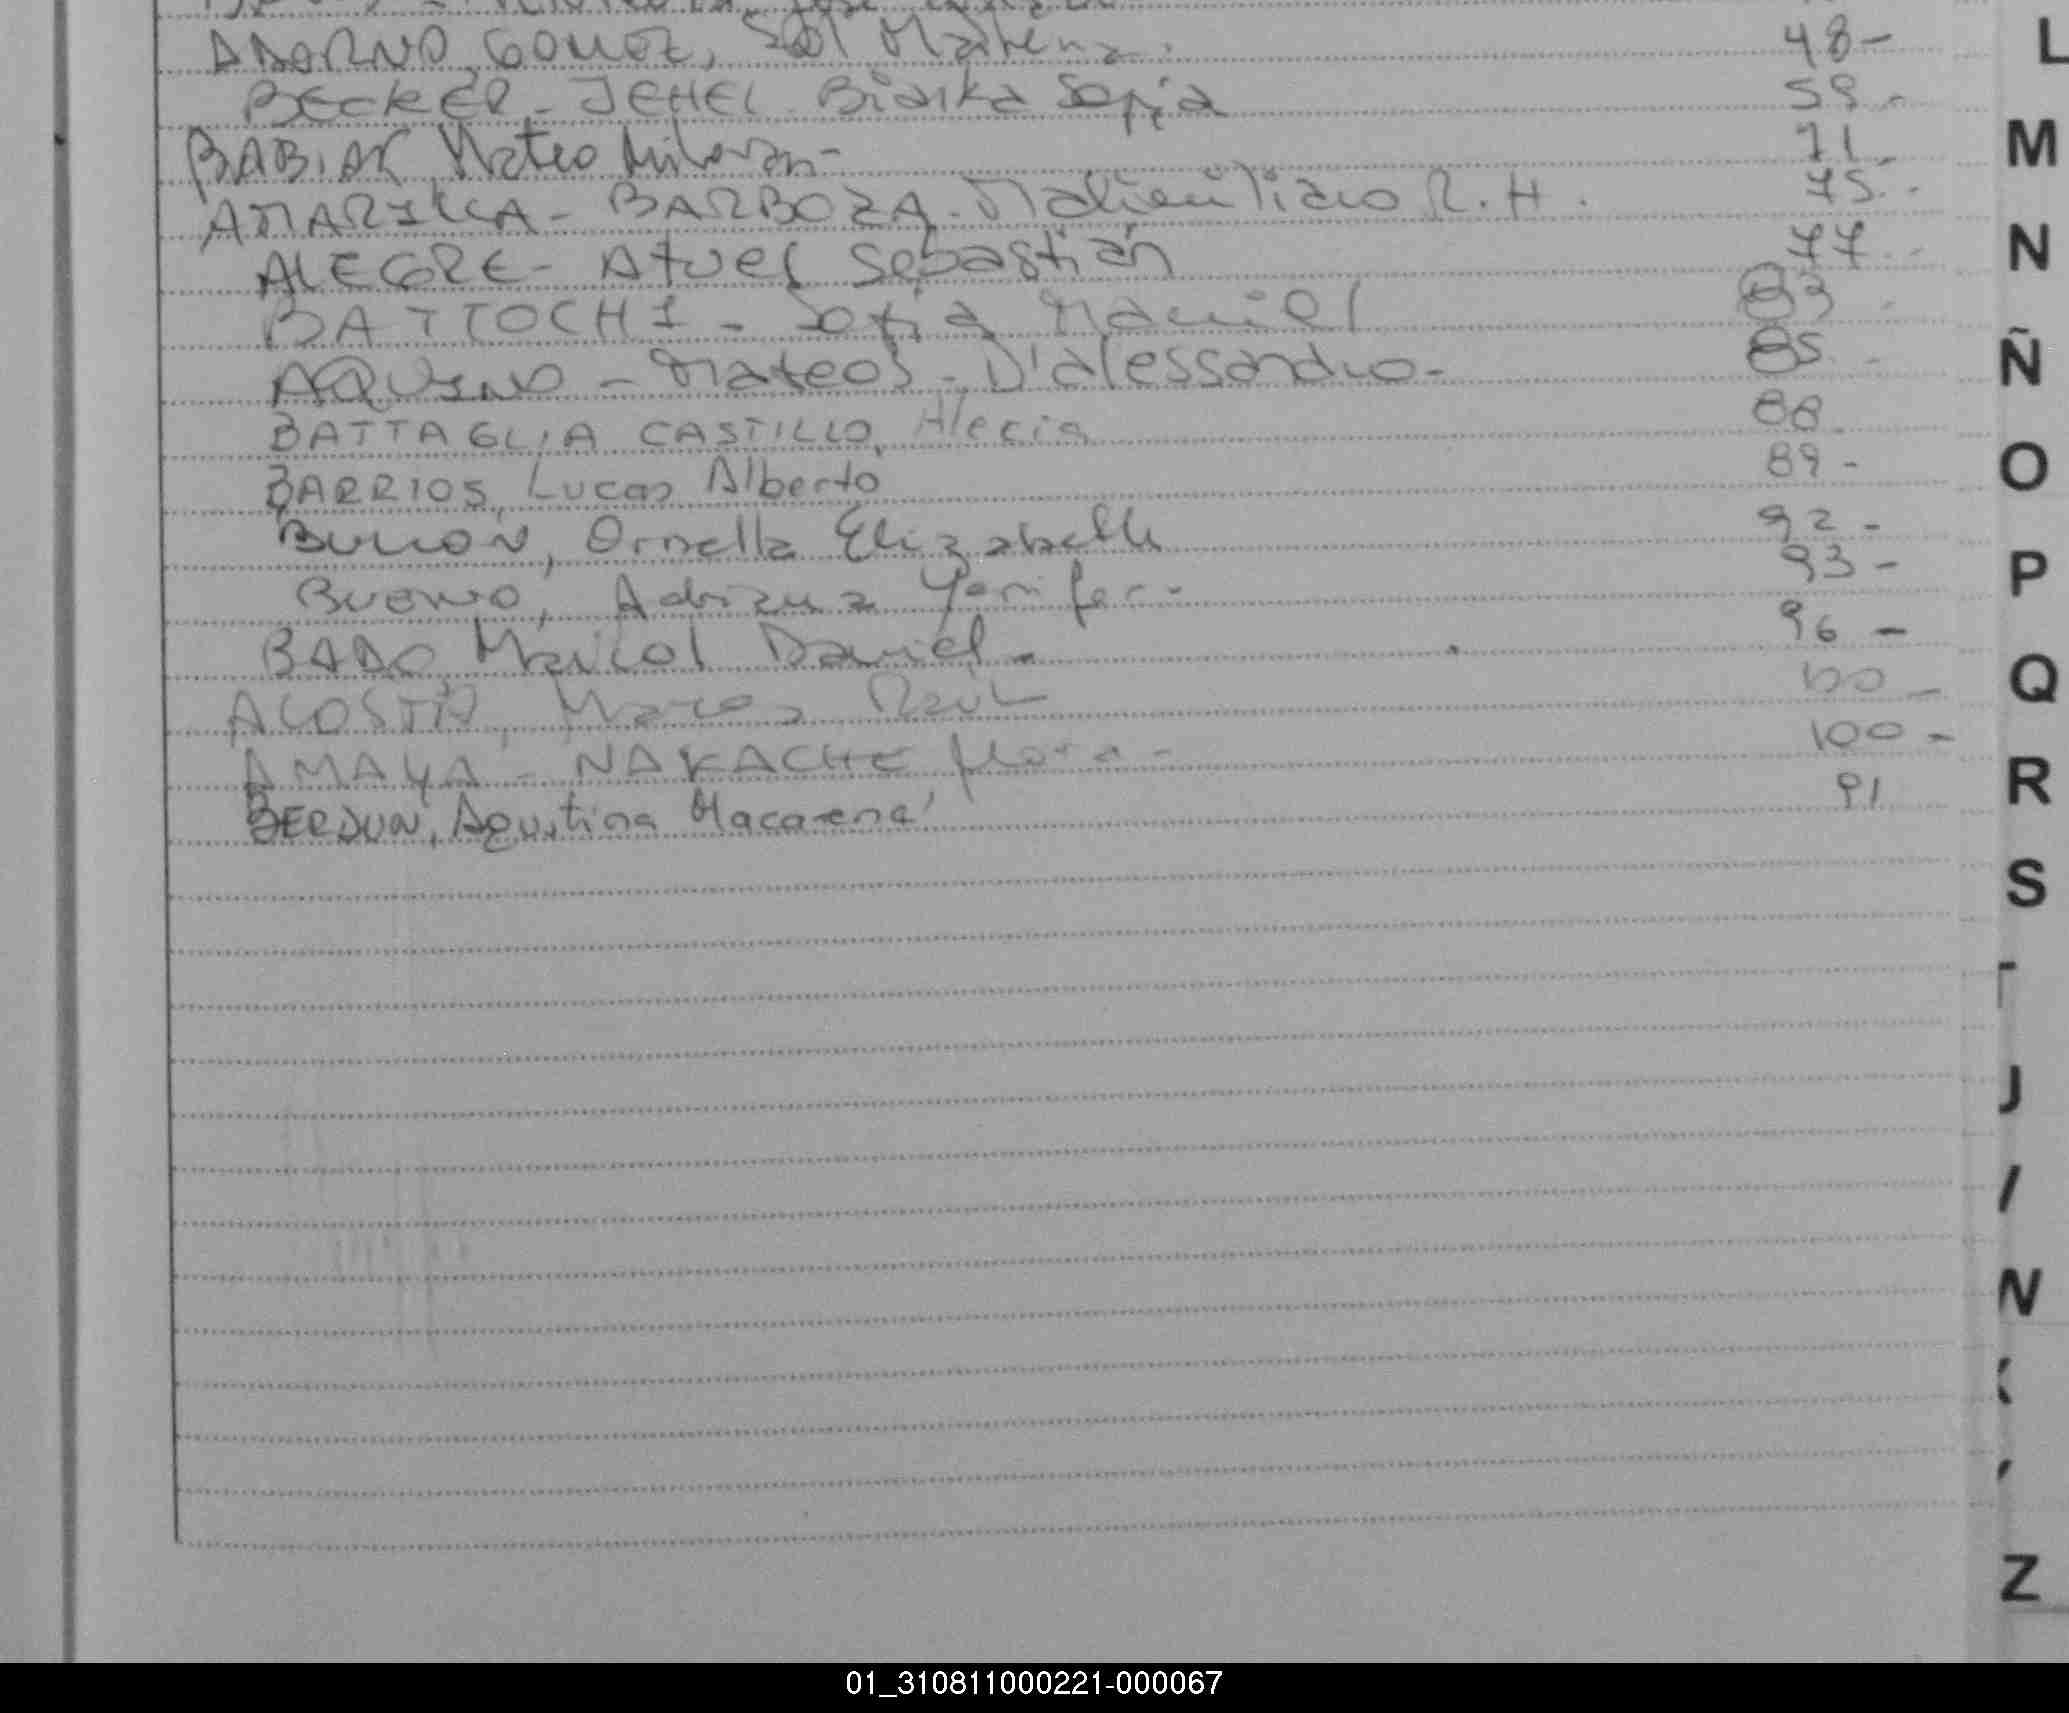 ADORNO GOMEZ, Sol Mailena. 48-
BECKER - JEHEL Bianka Sofia 59-
BABIAK Mateo Milovan- 71-
AMARILLA - BARBOZA - Maximiliano R. H. 75.-
ALEGRE - Atuel Sebastián 77.-
BATTOCHI - Sofia Mamiel 83-
AQUINO - Mateos - D'alessandro- 85-
BATTAGLIA CASTILLO, Alecia 88
BARRIOS, Lucas Alberto 89-
BULLON, Ornella Elizabeth 92-
BUENO, Adriana Yenifer- 93-
BADO Maicol Daniel- 96-
ACOSTA, Marcos Raul 100-
AMAYA - NAKACHE flora- 100-
BERDUN, Agustina Macarena 91
L
M
N
Ñ
O
P
Q
R
S
Z
01_310811000221-000067